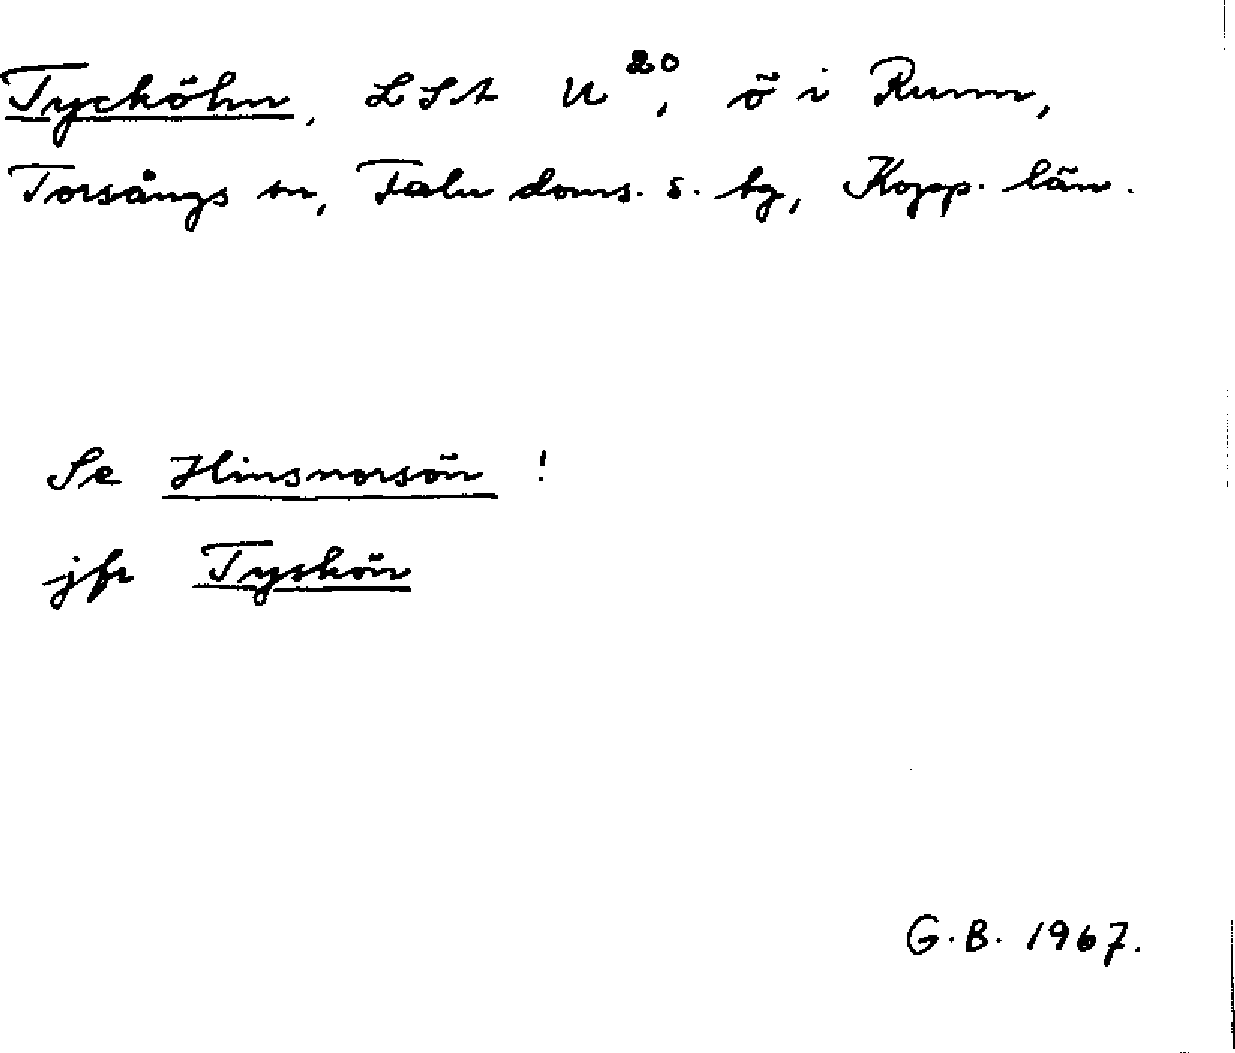 Tycköhn, LSt U 20, ö i Runn,
Torsångs sn, Falu doms. s. tg, Kopp. län.
Se Hinsnorsön !
jfr Tyskön
G.B. 1967.